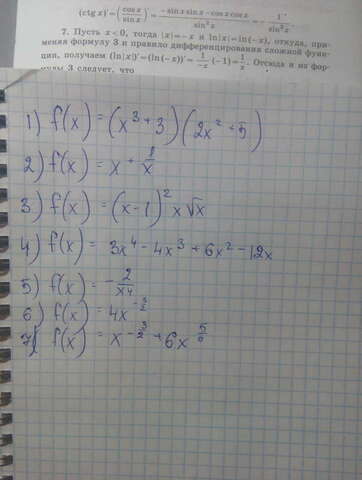 (ctg x)' = (cos x / sin x)' = (−sin x sin x − cos x cos x) / sin² x = − 1 / sin² x.
7. Пусть x < 0, тогда |x| = − x и ln|x| = ln(− x), откуда, при-
меняя формулу 3 и правило дифференцирования сложной функ-
ции, получаем (ln|x|)' = (ln(− x))' = 1/−x · (−1) = 1/x. Отсюда и из фор-
мулы 3 следует, что
1) f(x) = (x³ + 3)(2x² − 5)
2) f(x) = x +
3) f(x) = (x − 1)² x√x
4) f(x) = 3x⁴ − 4x³ + 6x² − 12x
5) f(x) = − 2/x⁴
6) f(x) = 4x
7) f(x) = x + 6x